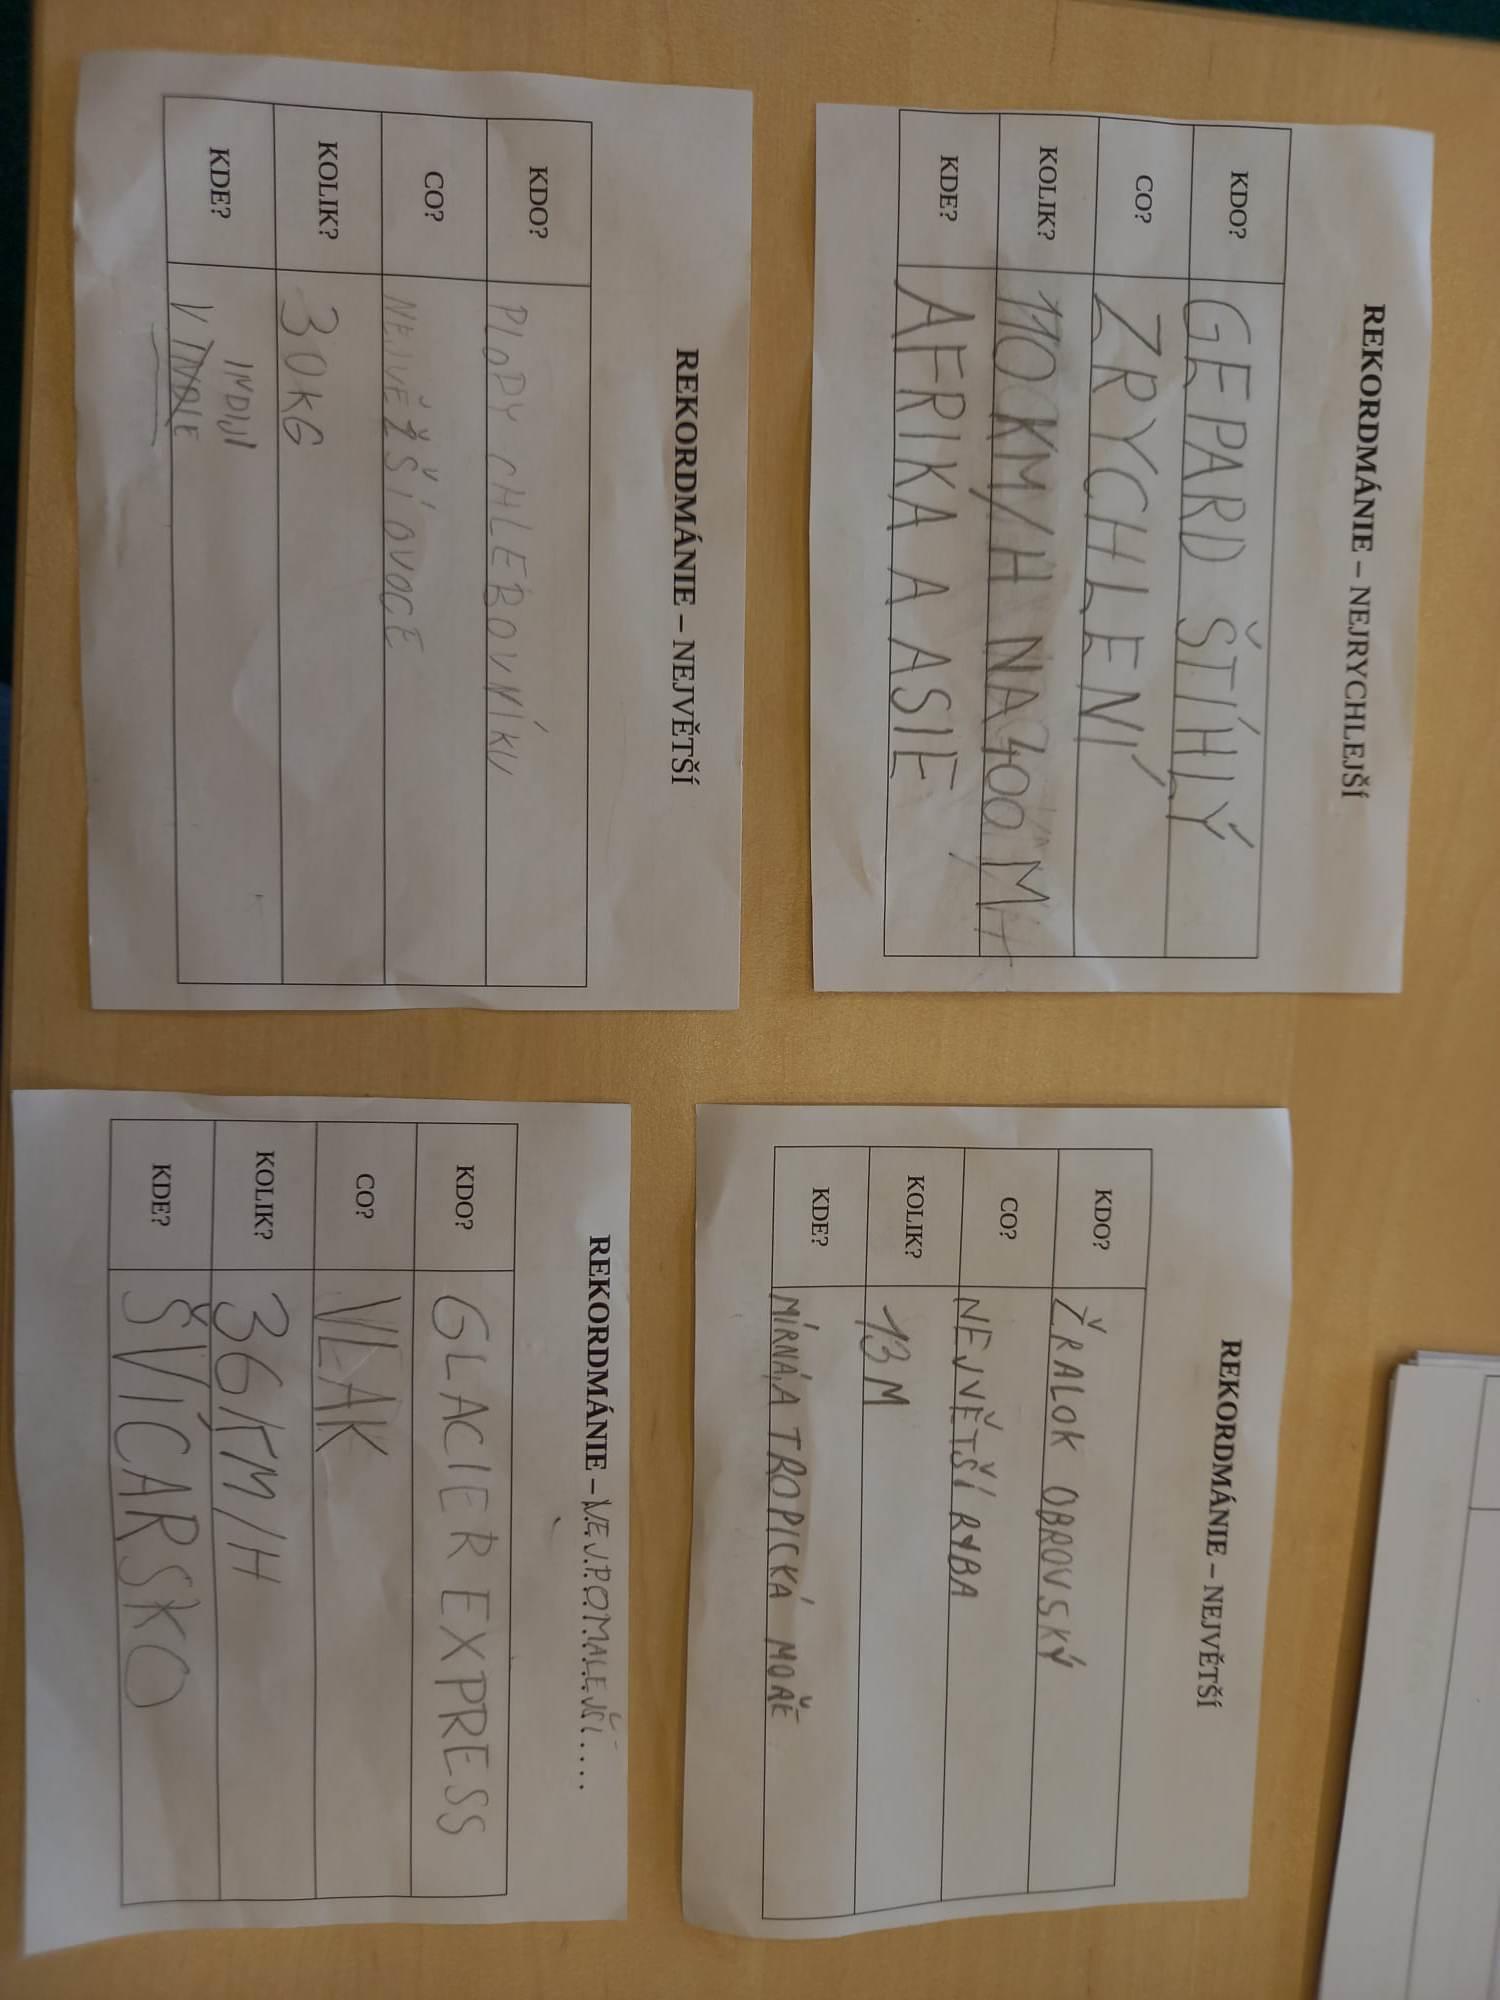 REKORDMÁNIE – NEJRYCHLEJŠÍ
KDO? GEPARD ŠTÍHLÝ
CO? ZRYCHLENÍ
KOLIK? 110 KM/H NA 400 M
KDE? AFRIKA A ASIE
REKORDMÁNIE – NEJVĚTŠÍ
KDO? ŽRALOK OBROVSKÝ
CO? NEJVĚTŠÍ RYBA
KOLIK? 13 M
KDE? MÍRNÁ A TROPICKÁ MOŘE
REKORDMÁNIE – NEJVĚTŠÍ
KDO? PLODY CHLEBOVNÍKU
CO? NEJVĚŽŠÍ OVOCE
KOLIK? 30KG
INDIJI
KDE? V INDIE
REKORDMÁNIE – NEJPOMALEJŠÍ.....
KDO? GLACIER EXPRESS
CO? VLAK
KOLIK? 36 KM/H
KDE? ŠVÍCARSKO